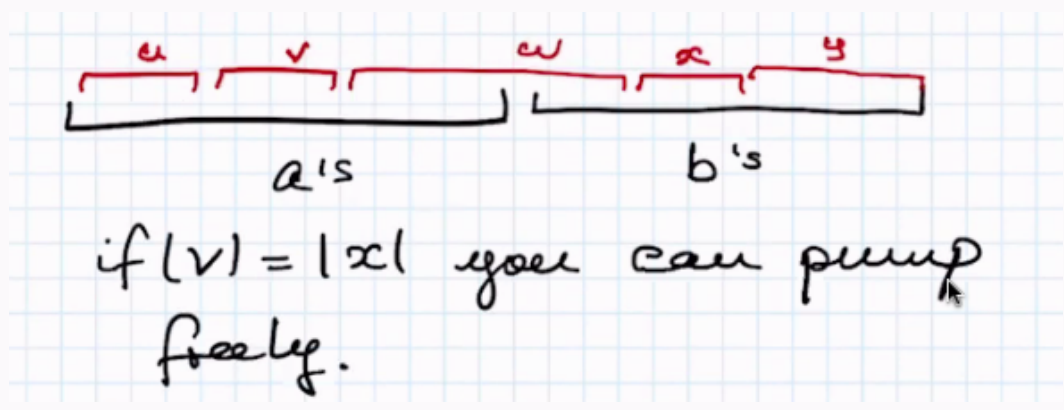 u v w x y
a's b's
if |v| = |x| you can pump
freely.